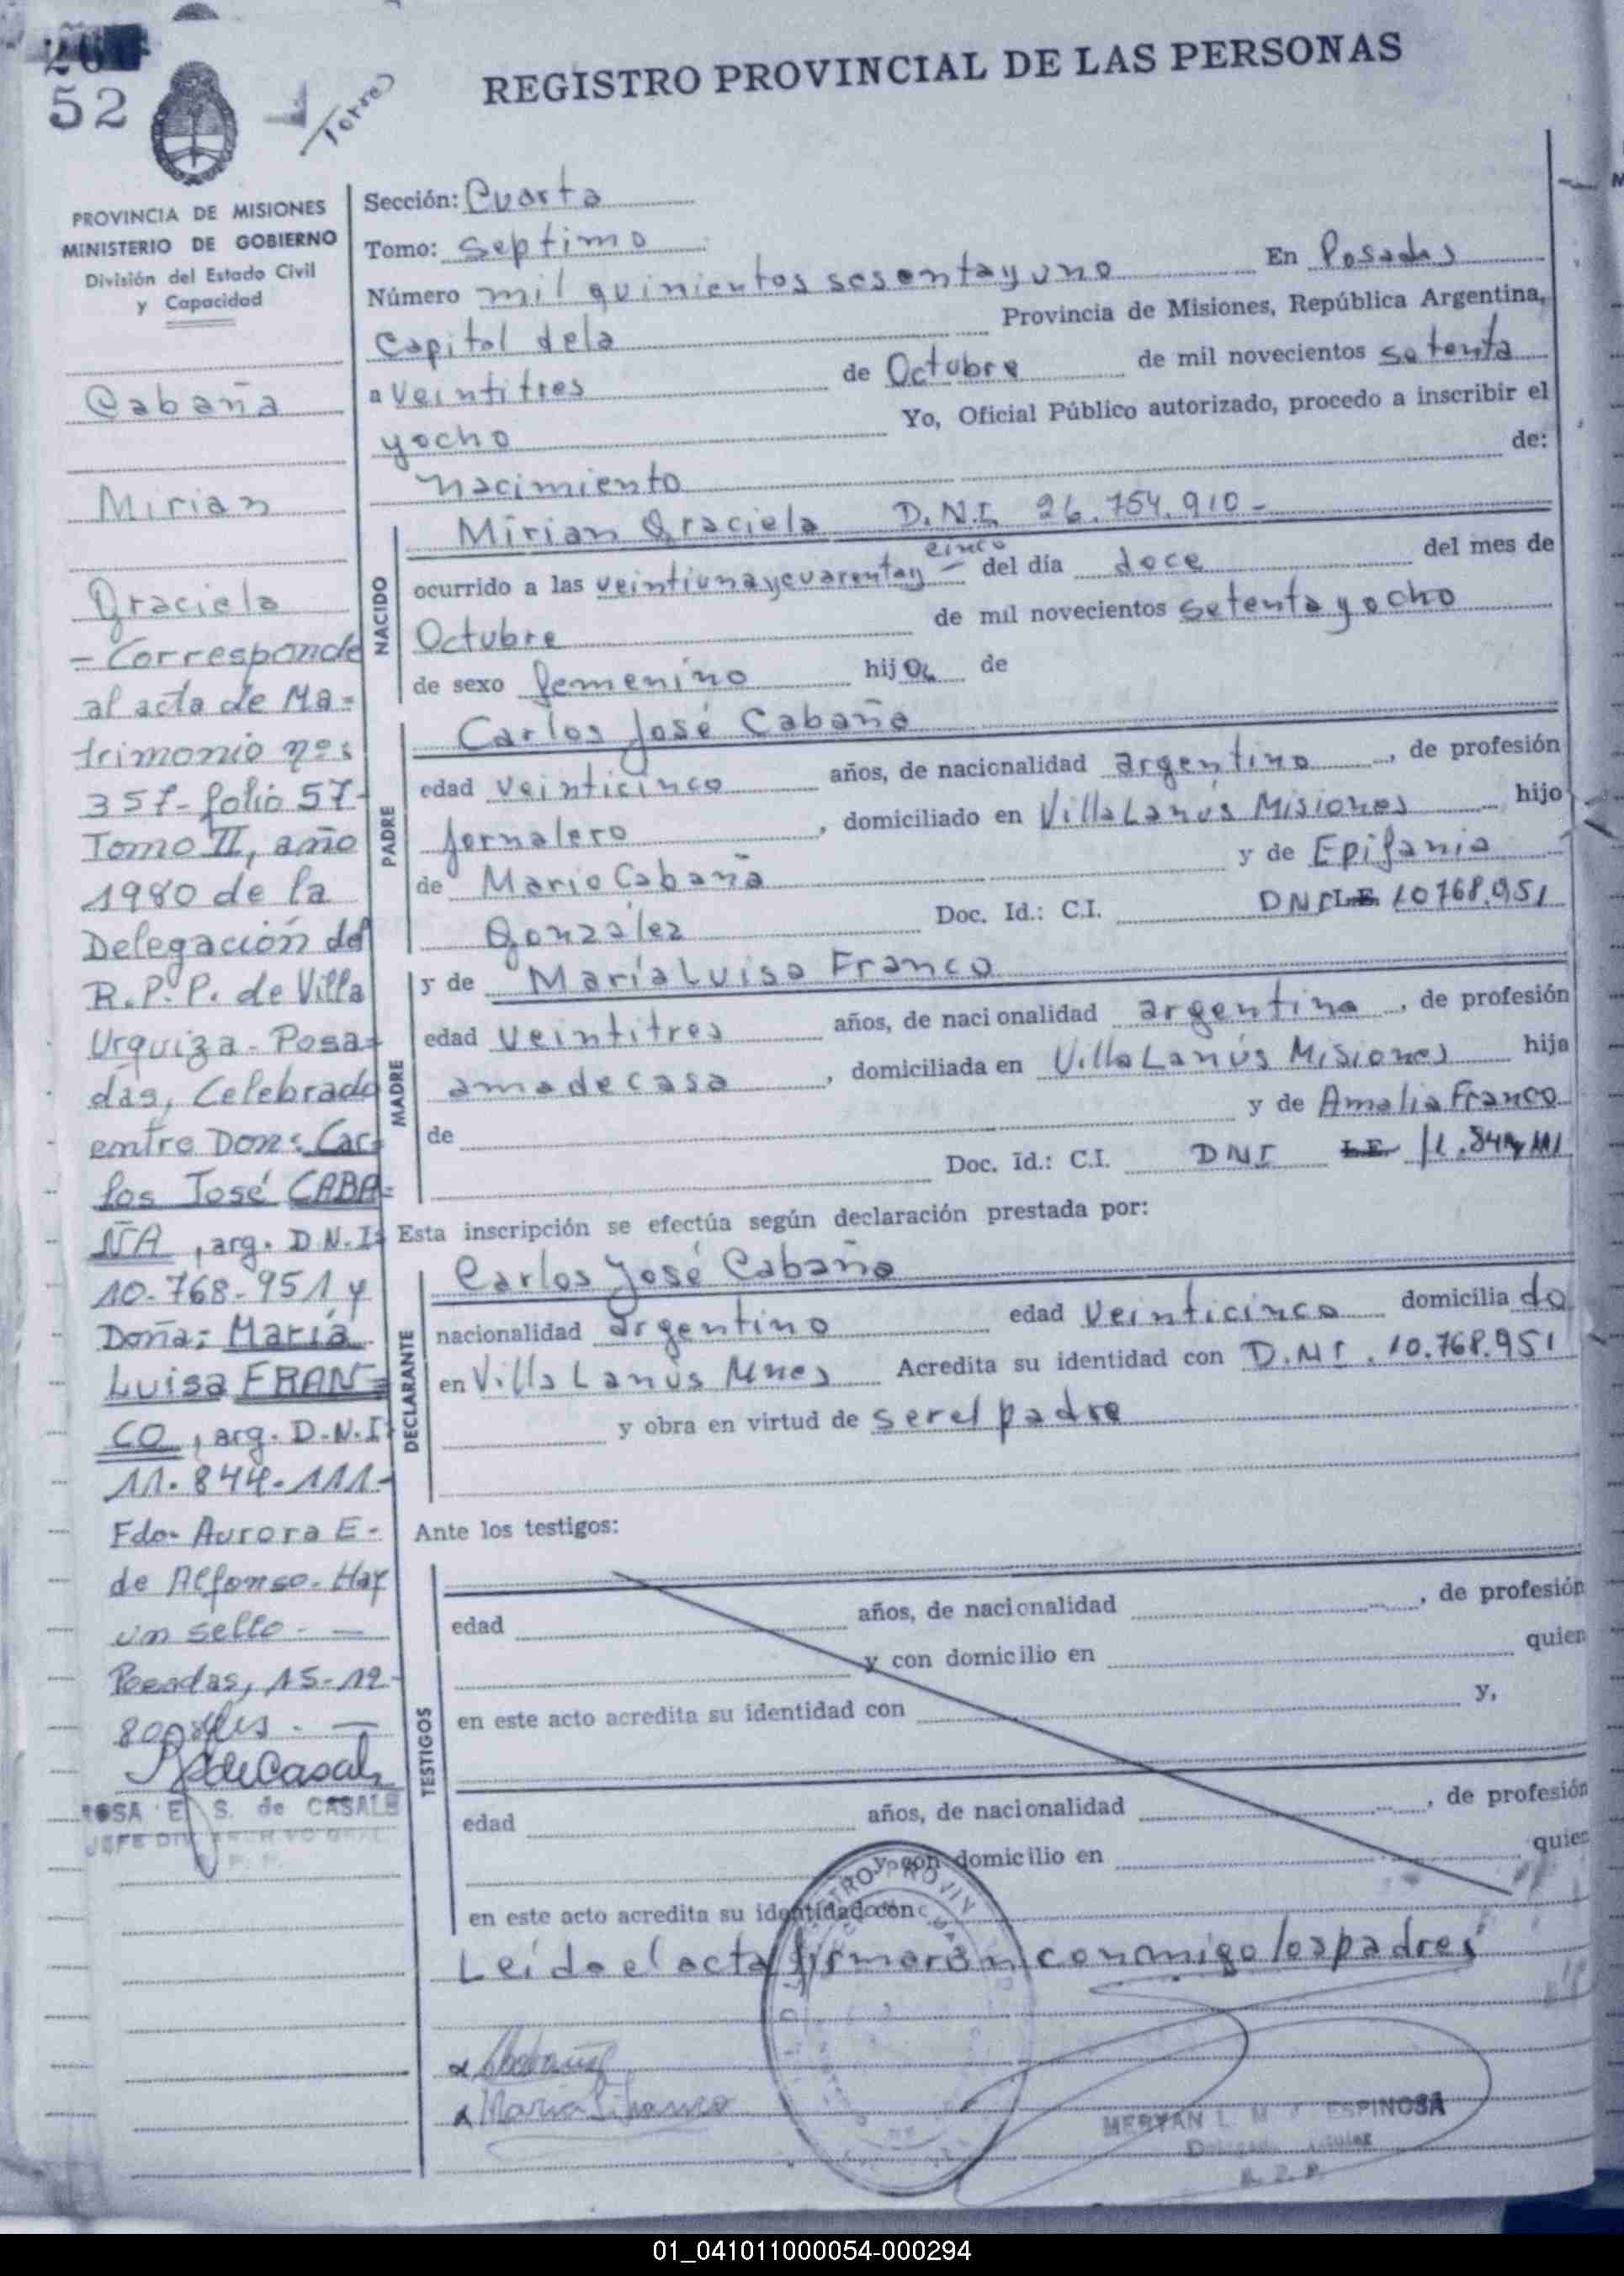 52
Torres
REGISTRO PROVINCIAL DE LAS PERSONAS
PROVINCIA DE MISIONES
MINISTERIO DE GOBIERNO
División del Estado Civil
y Capacidad
Cabaña
Mirian
Graciela
- Corresponde
al acta de Ma-
trimonio nº:
357-folio 57-
Tomo II, año
1980 de la
Delegación del
R.P.P. de Villa
Urquiza-Posa-
das, Celebrado
entre Don: Car-
los José CABA-
ÑA, arg. D.N.I:
10.768.951 y
Doña: María
Luisa FRAN-
CO, arg. D.N.I:
11.844.111-
Fdo- Aurora E-
de Alfonso- Hay
un sello. -
Posadas, 15-12-
80
ROSA E. S. de CASALS
JEFE DIV. ARCHIVO GRAL.
R. P. P.
Sección: Cuarta
Tomo: Septimo
Número mil quinientos sesenta y uno En Posadas
Capital de la Provincia de Misiones, República Argentina,
a veintitres de Octubre de mil novecientos setenta
y ocho Yo, Oficial Público autorizado, procedo a inscribir el
nacimiento de:
NACIDO
Mirian Graciela D.N.I. 26.754.910-
ocurrido a las veintiuna y cuarenta y cinco del día doce del mes de
Octubre de mil novecientos setenta y ocho
de sexo femenino hija de
PADRE
Carlos José Cabaña
edad veinticinco años, de nacionalidad argentino, de profesión
jornalero, domiciliado en Villa Lanús Misiones hijo
de Mario Cabaña y de Epifania
González Doc. Id.: C.I. DNI L.E. 10768.951
MADRE
y de María Luisa Franco
edad veintitres años, de nacionalidad argentina, de profesión
ama de casa, domiciliada en Villa Lanús Misiones hija
de y de Amalia Franco
Doc. Id.: C.I. DNI L.E. 11.844.111
Esta inscripción se efectúa según declaración prestada por:
DECLARANTE
Carlos José Cabaña
nacionalidad argentino edad veinticinco domiciliado
en Villa Lanús Mnes Acredita su identidad con D.N.I. 10.768.951
y obra en virtud de ser el padre
Ante los testigos:
TESTIGOS
edad años, de nacionalidad , de profesión
y con domicilio en quien
en este acto acredita su identidad con y,
edad años, de nacionalidad , de profesión
y con domicilio en quien
en este acto acredita su identidad con
Leído el acta firmaron conmigo los padres
x Cabaña
x María L. Franco
ESPINOSA
R. P. P.
01_041011000054-000294